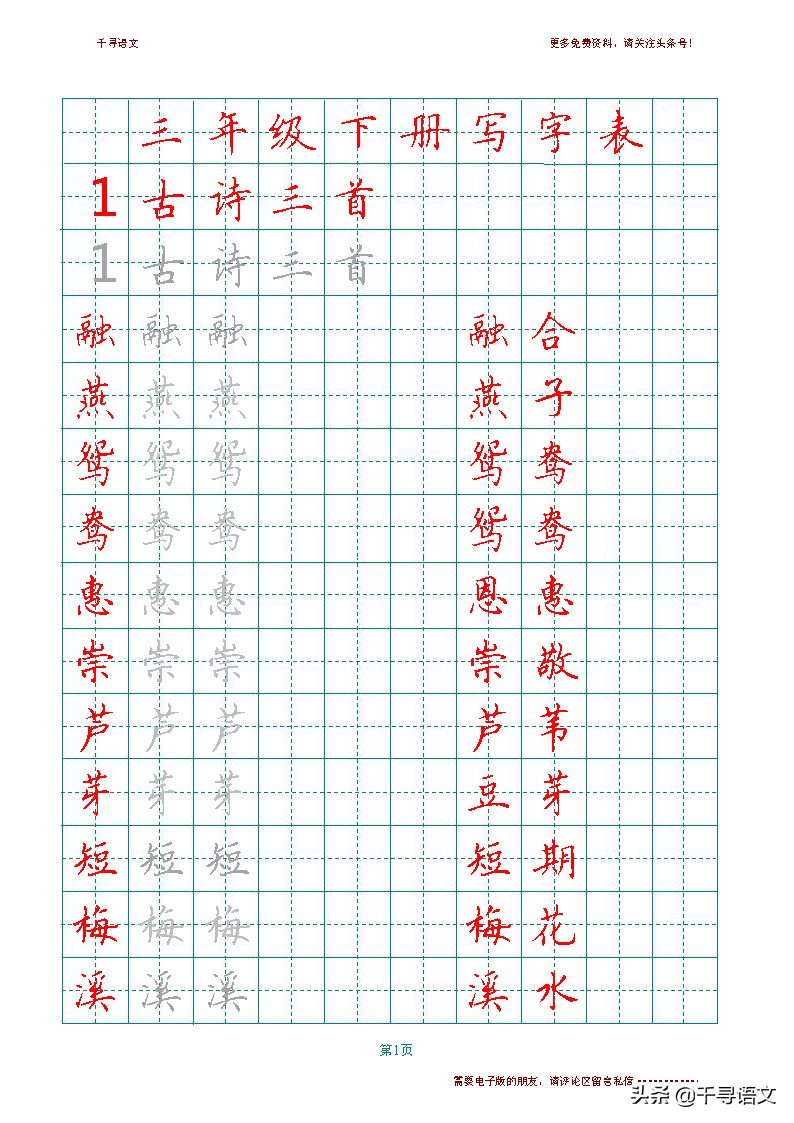 千寻语文 更多免费资料，请关注头条号！
三年级下册写字表
1古诗三首
1古诗三首
融融融 融合
燕燕燕 燕子
鸳鸳鸳 鸳鸯
鸯鸯鸯 鸳鸯
惠惠惠 恩惠
崇崇崇 崇敬
芦芦芦 芦苇
芽芽芽 豆芽
短短短 短期
梅梅梅 梅花
溪溪溪 溪水
第1页
需要电子版的朋友，请评论区留言私信------------
头条 @千寻语文